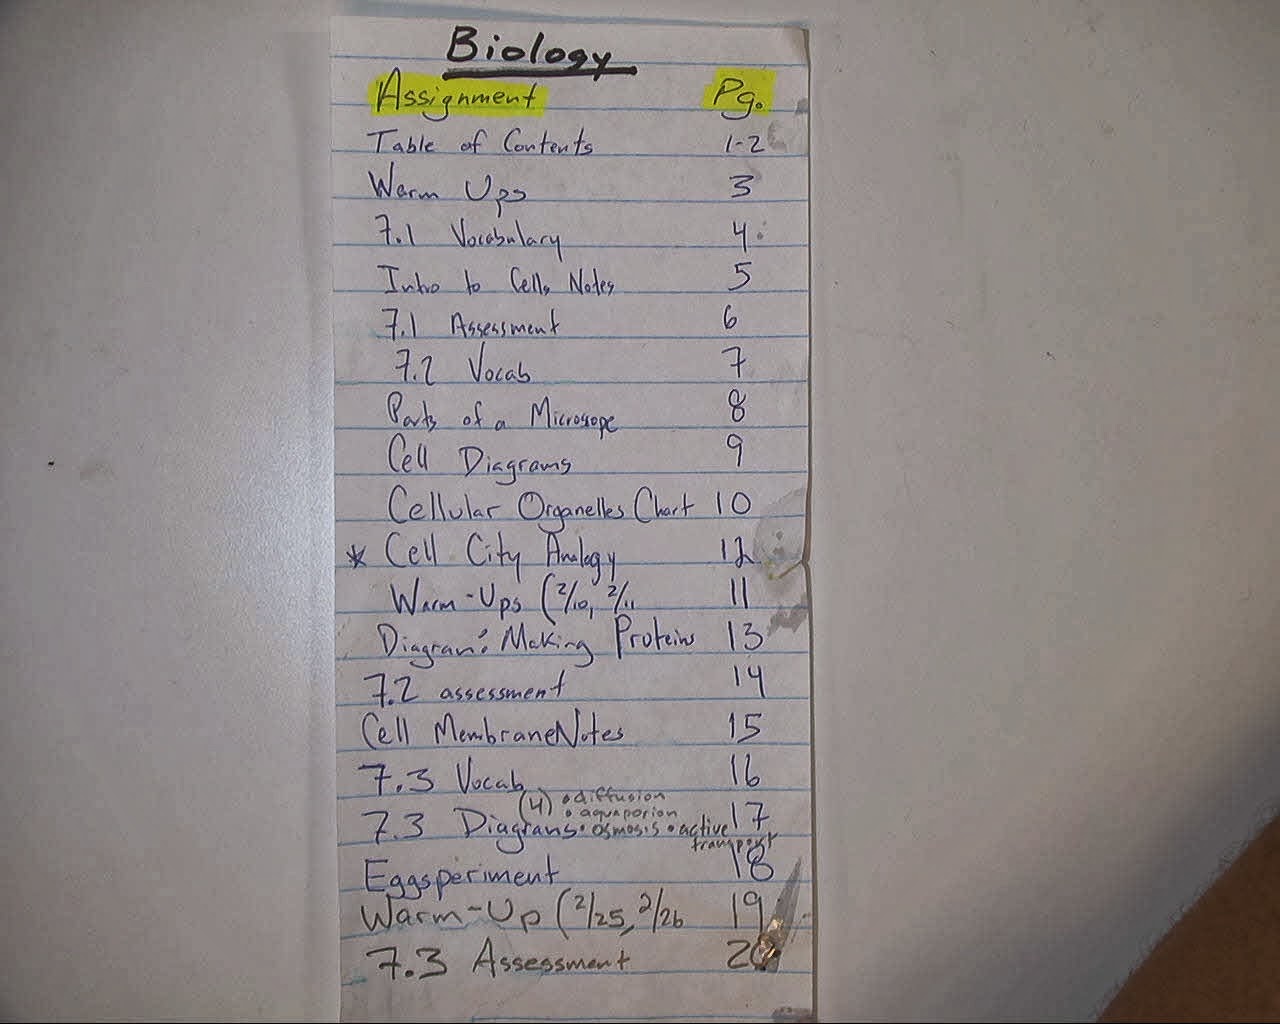 Biology
Assignment Pg.
Table of Contents 1-2
Warm Ups 3
7.1 Vocabulary 4
Intro to Cells Notes 5
7.1 Assessment 6
7.2 Vocab 7
Parts of a Microsope 8
Cell Diagrams 9
Cellular Organelles Chart 10
* Cell City Analogy 12
Warm-Ups (2/10, 2/11 11
Diagram: Making Proteins 13
7.2 assessment 14
Cell Membrane Notes 15
7.3 Vocab 16
(4) • diffusion
• aquaporion
7.3 Diagrams • osmosis • active 17
transport
Eggsperiment 18
Warm-Up (2/25, 2/26 19
7.3 Assessment 20